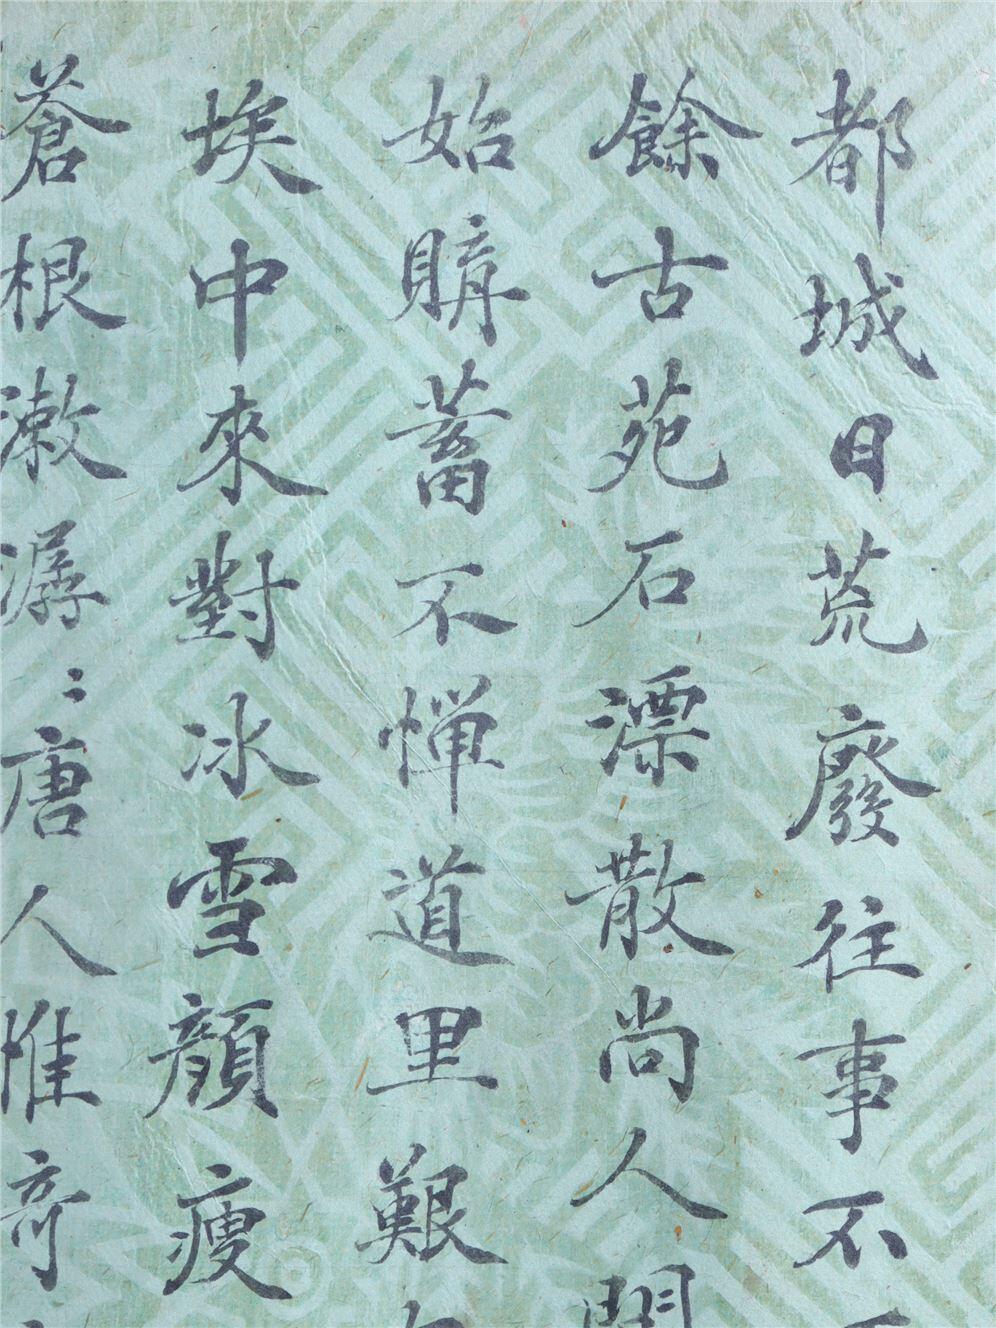 都城日荒廢往事不
餘古苑石漂散尚人間
始購蓄不憚道里艱
埃中來對冰雪顏瘦
蒼根漱潺〻唐人惟奇